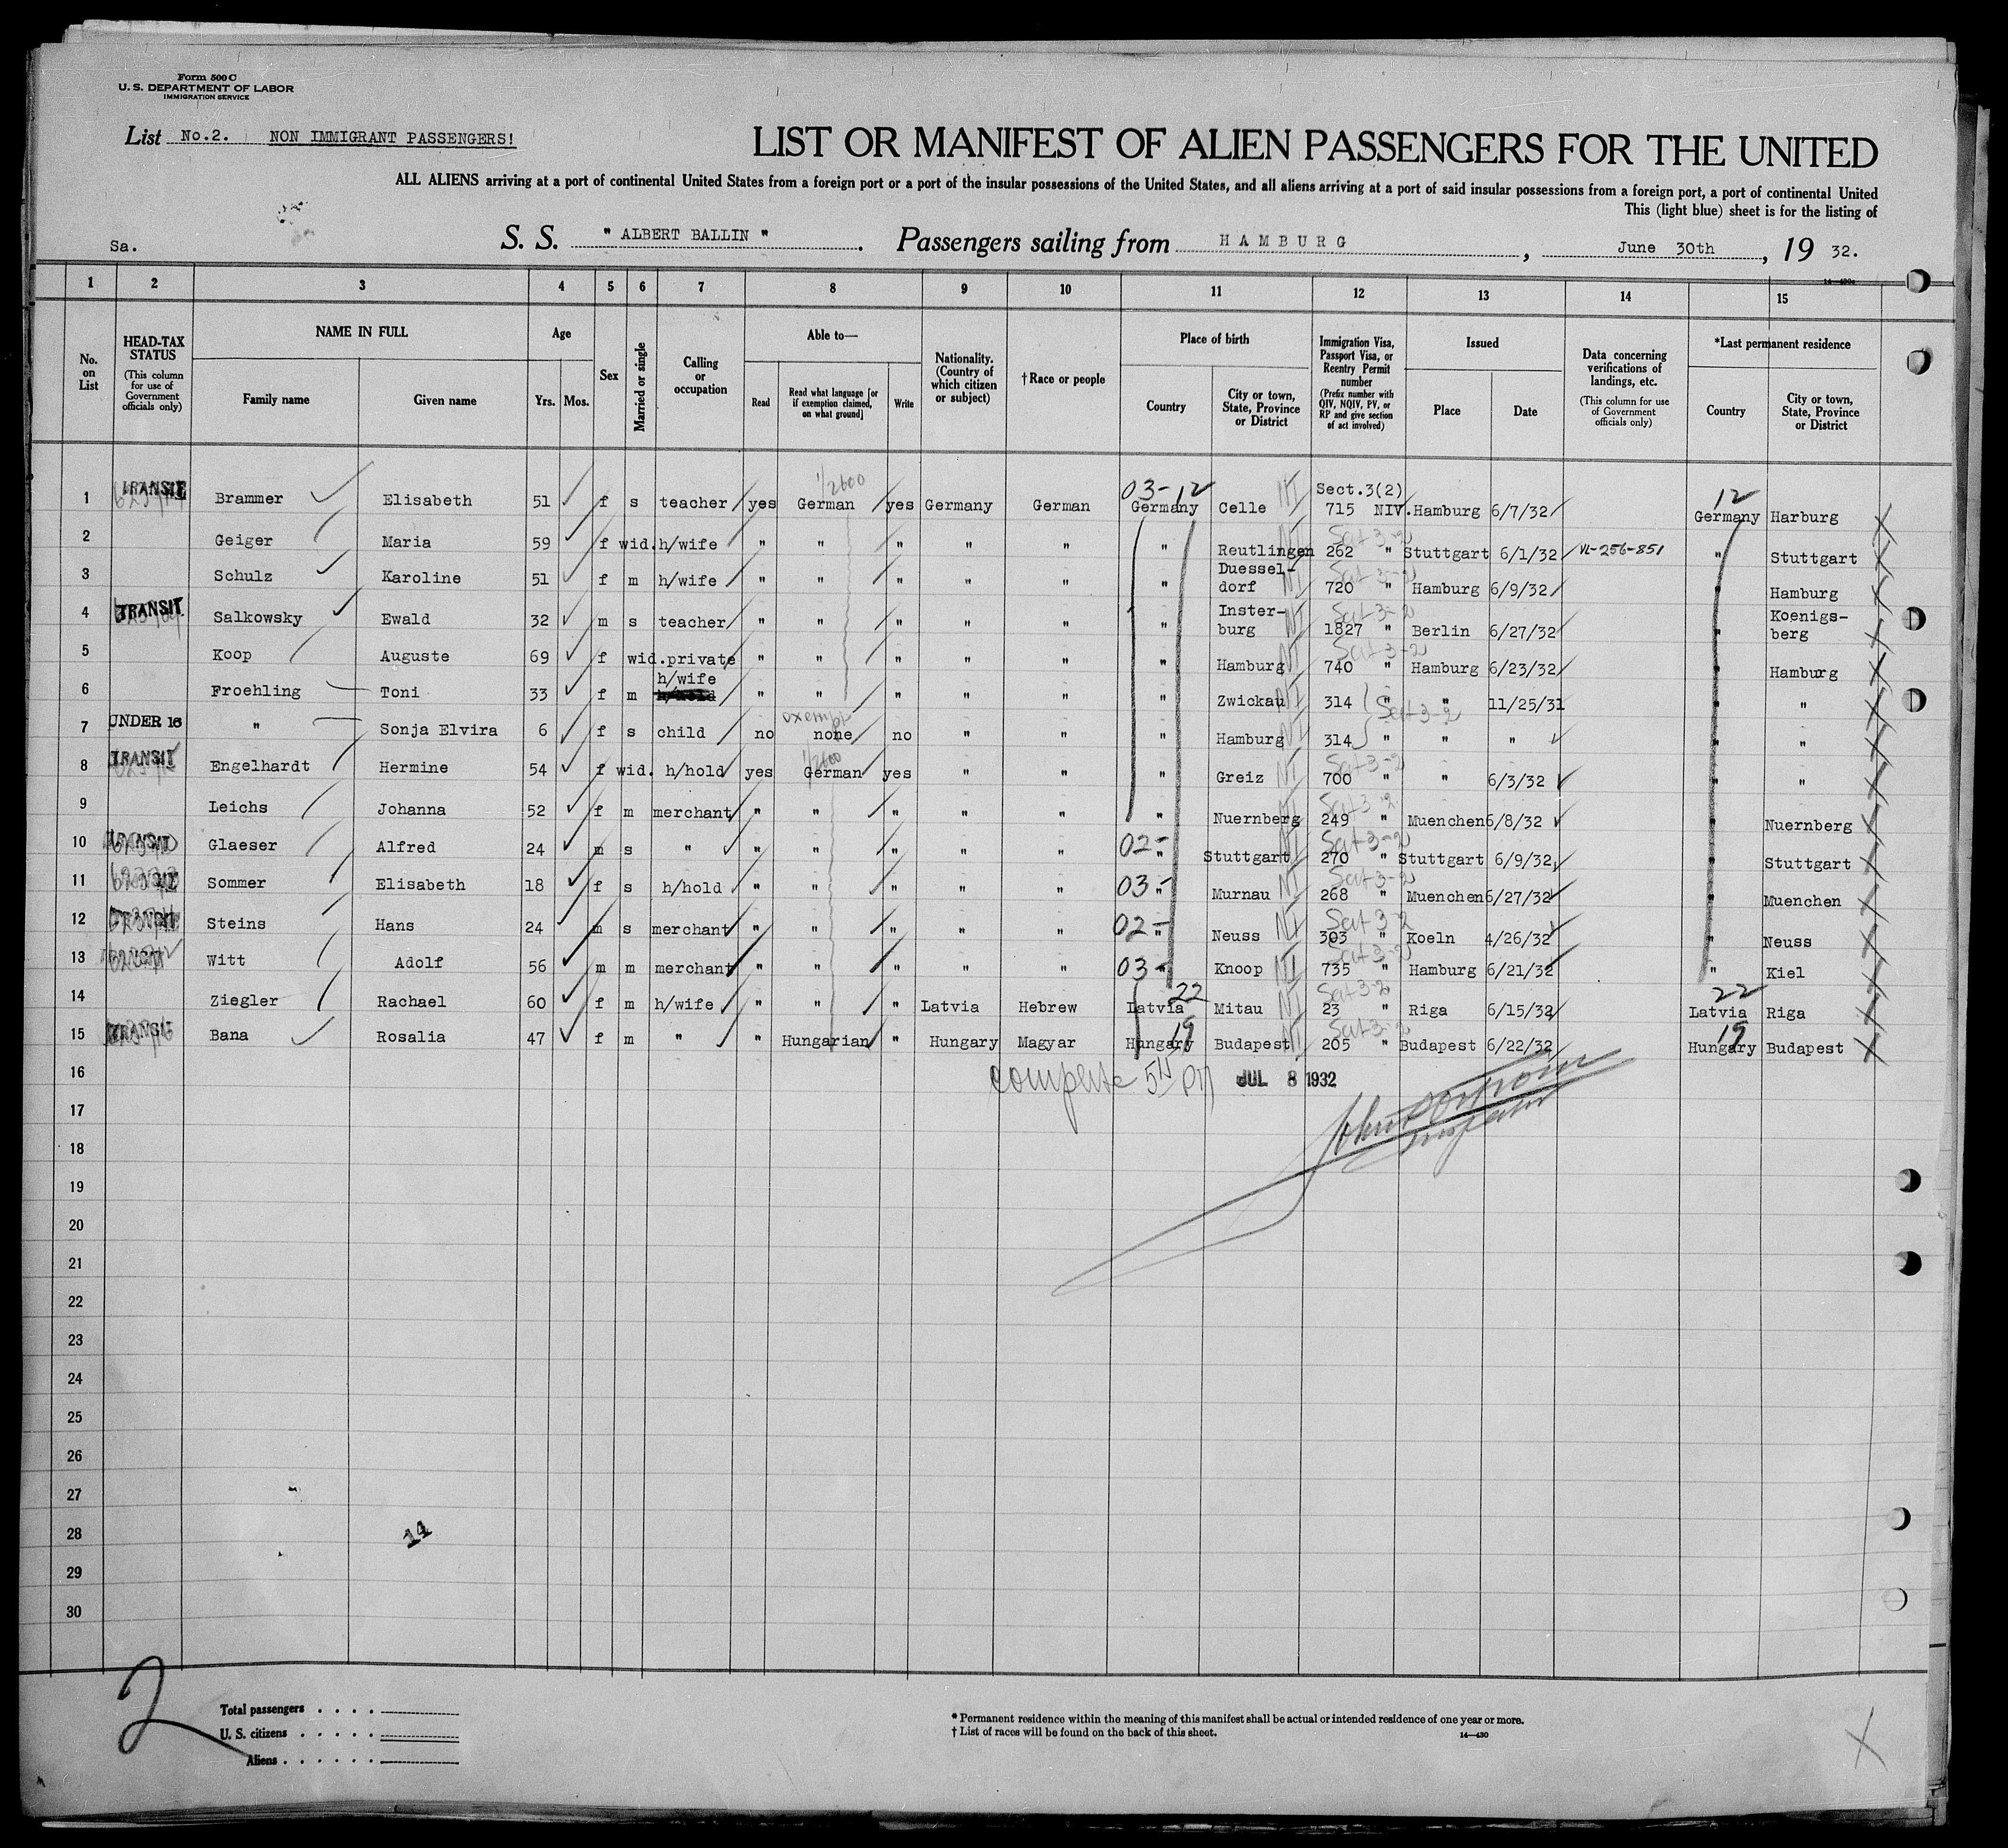 Form 500 C
U. S. DEPARTMENT OF LABOR
IMMIGRATION SERVICE
List No.2. NON IMMIGRANT PASSENGERS!
LIST OR MANIFEST OF ALIEN PASSENGERS FOR THE UNITED
ALL ALIENS arriving at a port of continental United States from a foreign port or a port of the insular possessions of the United States, and all aliens arriving at a port of said insular possessions from a foreign port, a port of continental United
This (light blue) sheet is for the listing of
Sa. S. S. " ALBERT BALLIN ". Passengers sailing from HAMBURG, June 30th, 19 32.
1 2 3 4 5 6 7 8 9 10 11 12 13 14 15
No. on List
HEAD-TAX STATUS (This column for use of Government officials only)
NAME IN FULL Family name Given name
Age Yrs. Mos.
Sex
Married or single
Calling or occupation
Able to— Read Read what language [or if exemption claimed, on what ground] Write
Nationality. (Country of which citizen or subject)
†Race or people
Place of birth Country City or town, State, Province or District
Immigration Visa, Passport Visa, or Reentry Permit number (Prefix number with QIV, NQIV, PV, or RP and give section of act involved)
Issued Place Date
Data concerning verifications of landings, etc. (This column for use of Government officials only)
*Last permanent residence Country City or town, State, Province or District
1 TRANSIT Brammer Elisabeth 51 f s teacher yes German yes Germany German 03-12 Germany Celle Sect.3(2) 715 NIV. Hamburg 6/7/32 12 Germany Harburg
2 Geiger Maria 59 f wid. h/wife " " " " " " Reutlingen 262 " Stuttgart 6/1/32 VL-256-851 " Stuttgart
3 Schulz Karoline 51 f m h/wife " " " " " " Duessel-dorf 720 " Hamburg 6/9/32 " Hamburg
4 TRANSIT Salkowsky Ewald 32 m s teacher " " " " " " Inster-burg 1827 " Berlin 6/27/32 " Koenigs-berg
5 Koop Auguste 69 f wid. private " " " " " " Hamburg 740 " Hamburg 6/23/32 " Hamburg
6 Froehling Toni 33 f m h/wife " " " " " " Zwickau 314 " " 11/25/31 " "
7 UNDER 16 " Sonja Elvira 6 f s child no exempt none no " " " Hamburg 314 " " " " "
8 TRANSIT Engelhardt Hermine 54 f wid. h/hold yes German yes " " " Greiz 700 " " 6/3/32 " "
9 Leichs Johanna 52 f m merchant " " " " " " Nuernberg 249 " Muenchen 6/8/32 " Nuernberg
10 TRANSIT Glaeser Alfred 24 m s " " " " " " 02- " Stuttgart 270 " Stuttgart 6/9/32 " Stuttgart
11 TRANSIT Sommer Elisabeth 18 f s h/hold " " " " " 03- " Murnau 268 " Muenchen 6/27/32 " Muenchen
12 TRANSIT Steins Hans 24 m s merchant " " " " " 02- " Neuss 303 " Koeln 4/26/32 " Neuss
13 TRANSIT Witt Adolf 56 m m merchant " " " " " 03- " Knoop 735 " Hamburg 6/21/32 " Kiel
14 Ziegler Rachael 60 f m h/wife " " " Latvia Hebrew 22 Latvia Mitau 23 " Riga 6/15/32 22 Latvia Riga
15 TRANSIT Bana Rosalia 47 f m " " Hungarian " Hungary Magyar 19 Hungary Budapest 205 " Budapest 6/22/32 19 Hungary Budapest
16 complete JUL 8 1932
17
18
19
20
21
22
23
24
25
26
27
28 14
29
30
2
Total passengers
U. S. citizens
Aliens
* Permanent residence within the meaning of this manifest shall be actual or intended residence of one year or more.
† List of races will be found on the back of this sheet. 14—430